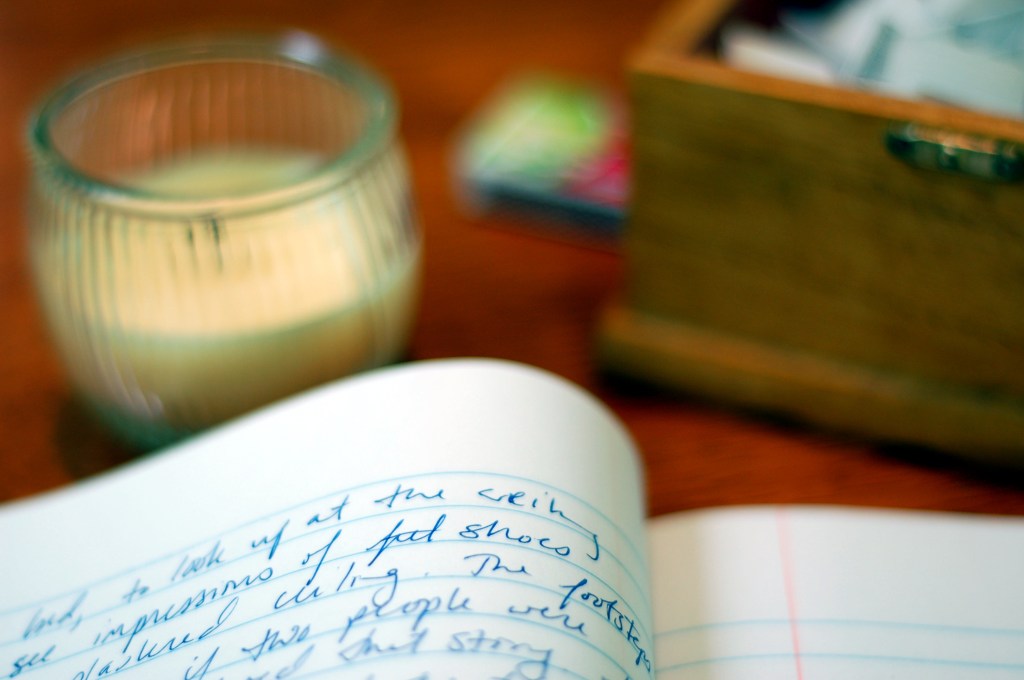 bed, to look up at the ceiling
see impressions of feet shoes
plastered ceiling. The footsteps
if two people were
that story